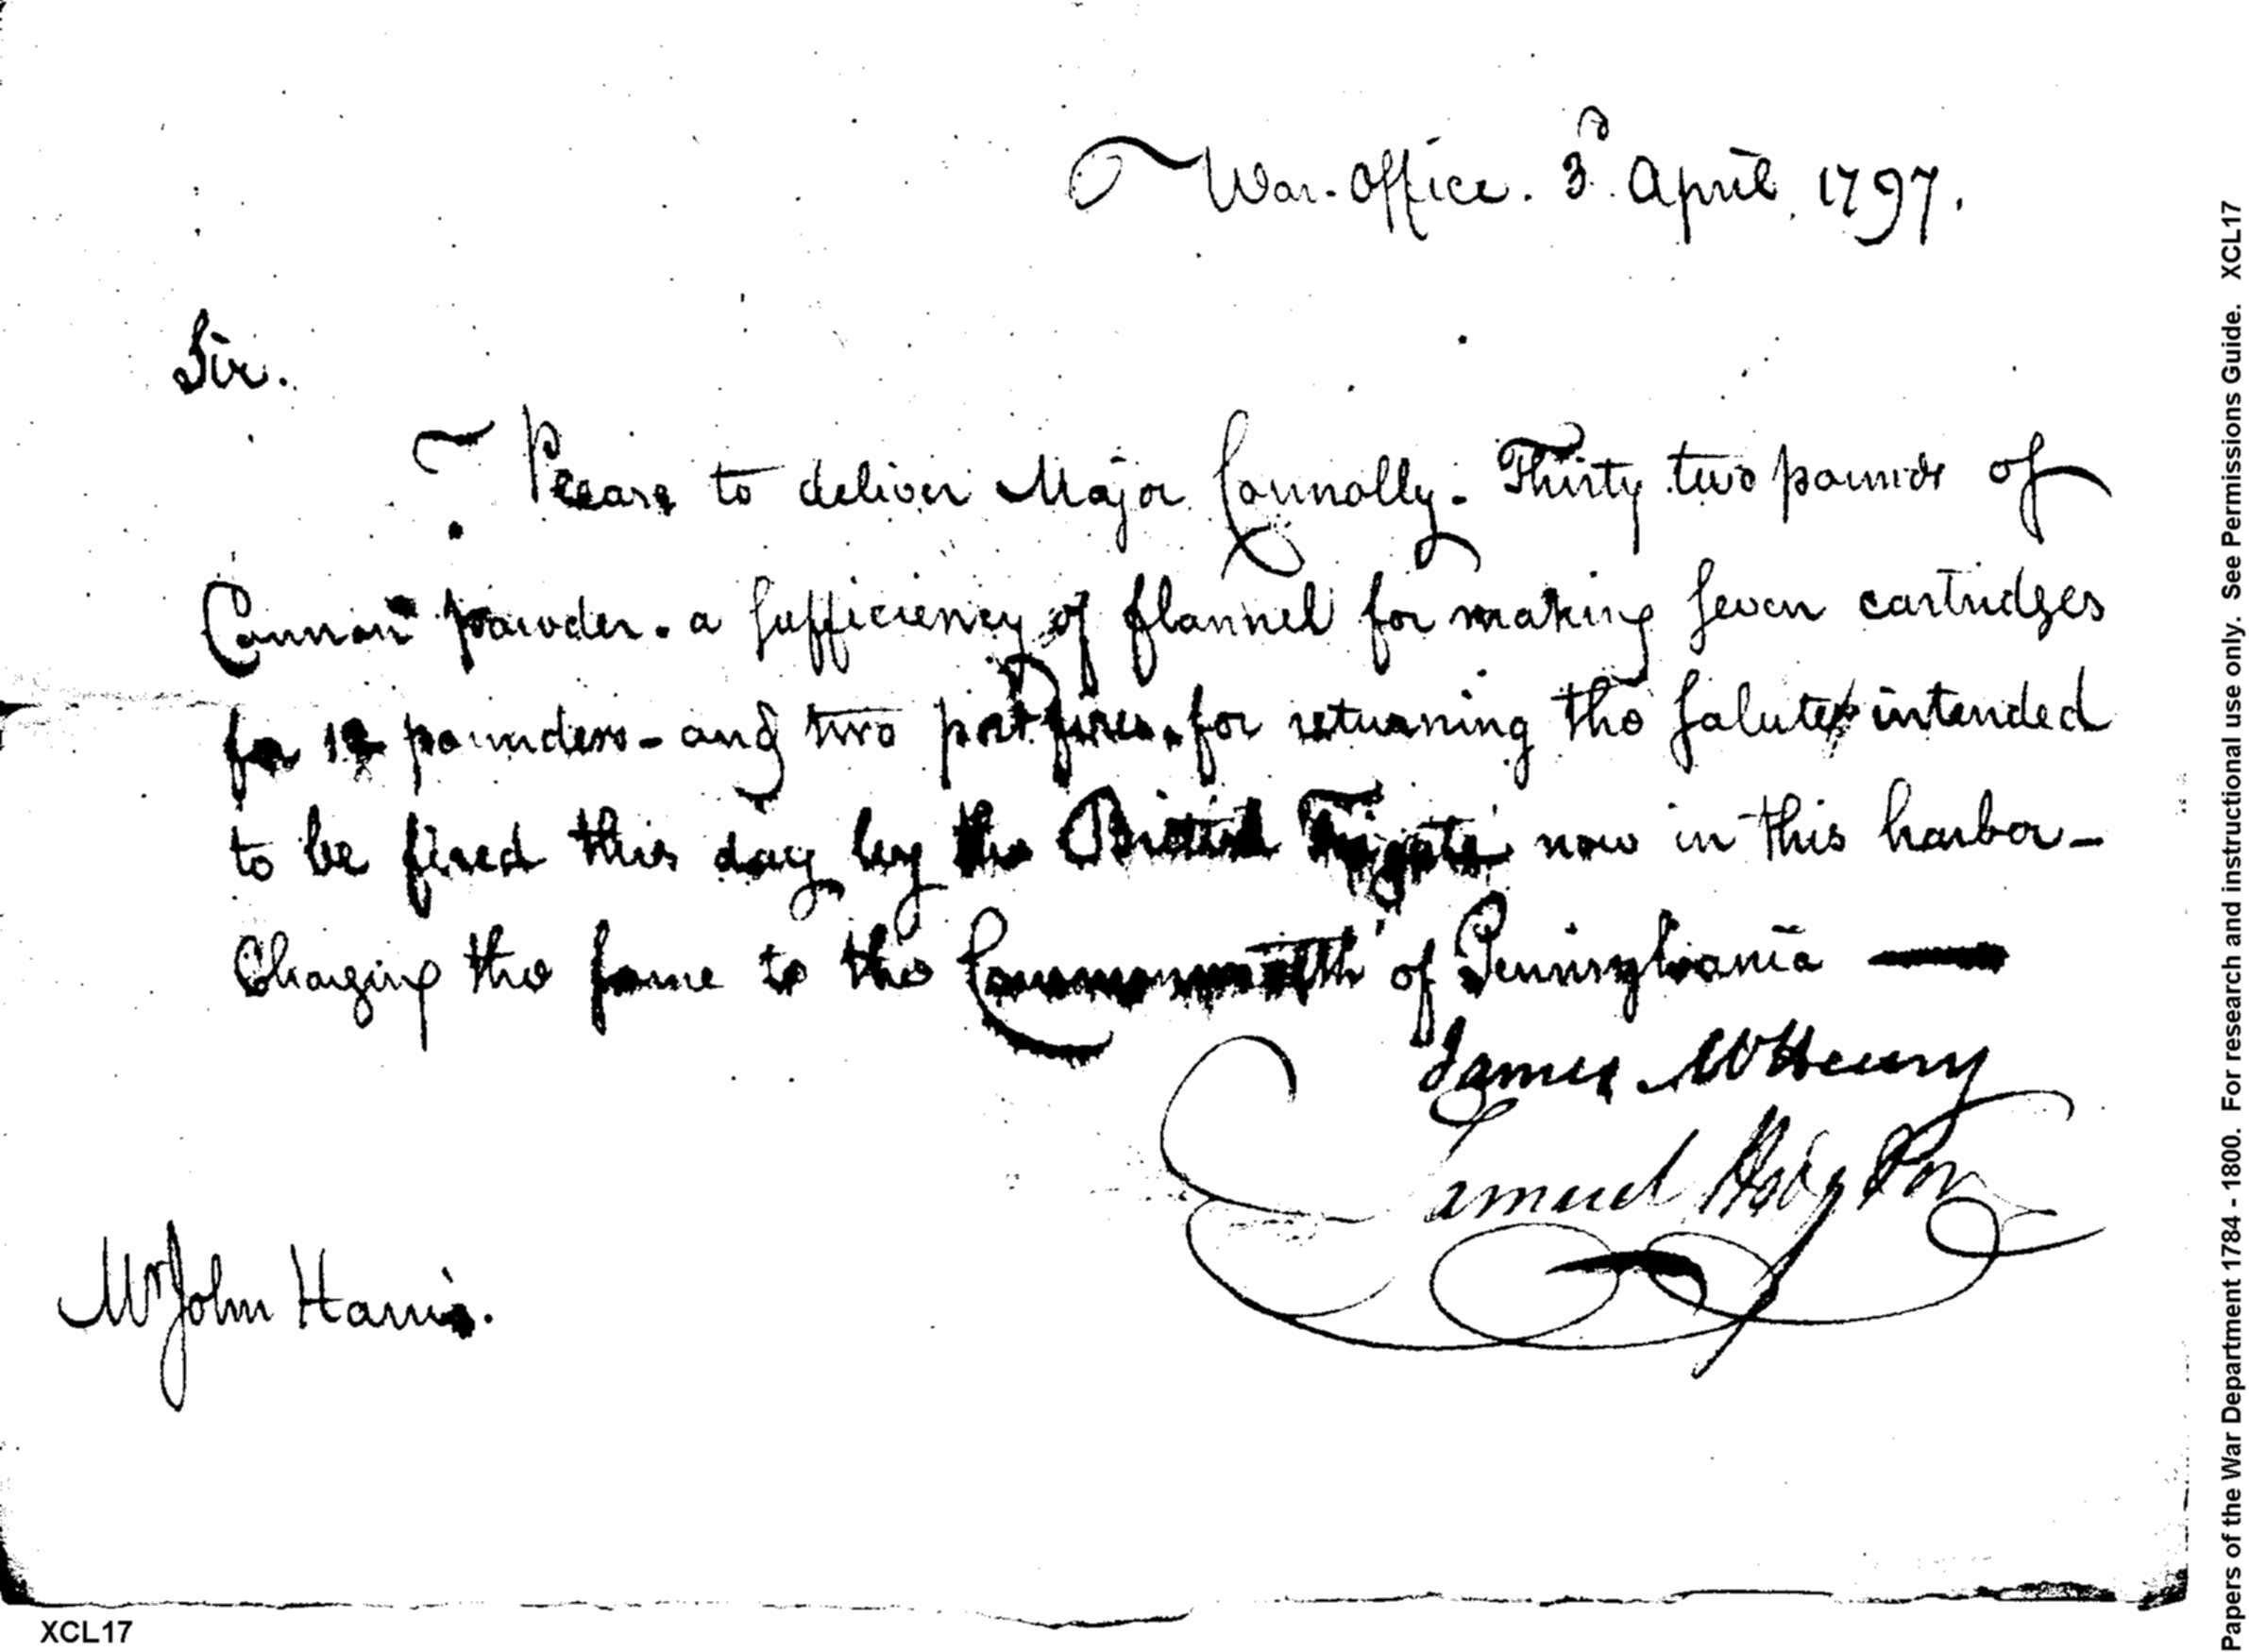 War-Office. 3d. April. 1797.
Sir.
Please to deliver Major Connolly. Thirty two pounds of
Cannon powder. a sufficiency of flannel for making seven cartridges
for 12 pounders - and two portfires. for returning the salute intended
to be fired this day by the British Frigate now in this harbor-
Charging the same to the Commonwealth of Pennsylvania
James McHenry
Samuel Hodgdon
Mr John Harris.
XCL17
Papers of the War Department 1784 - 1800. For research and instructional use only. See Permissions Guide. XCL17